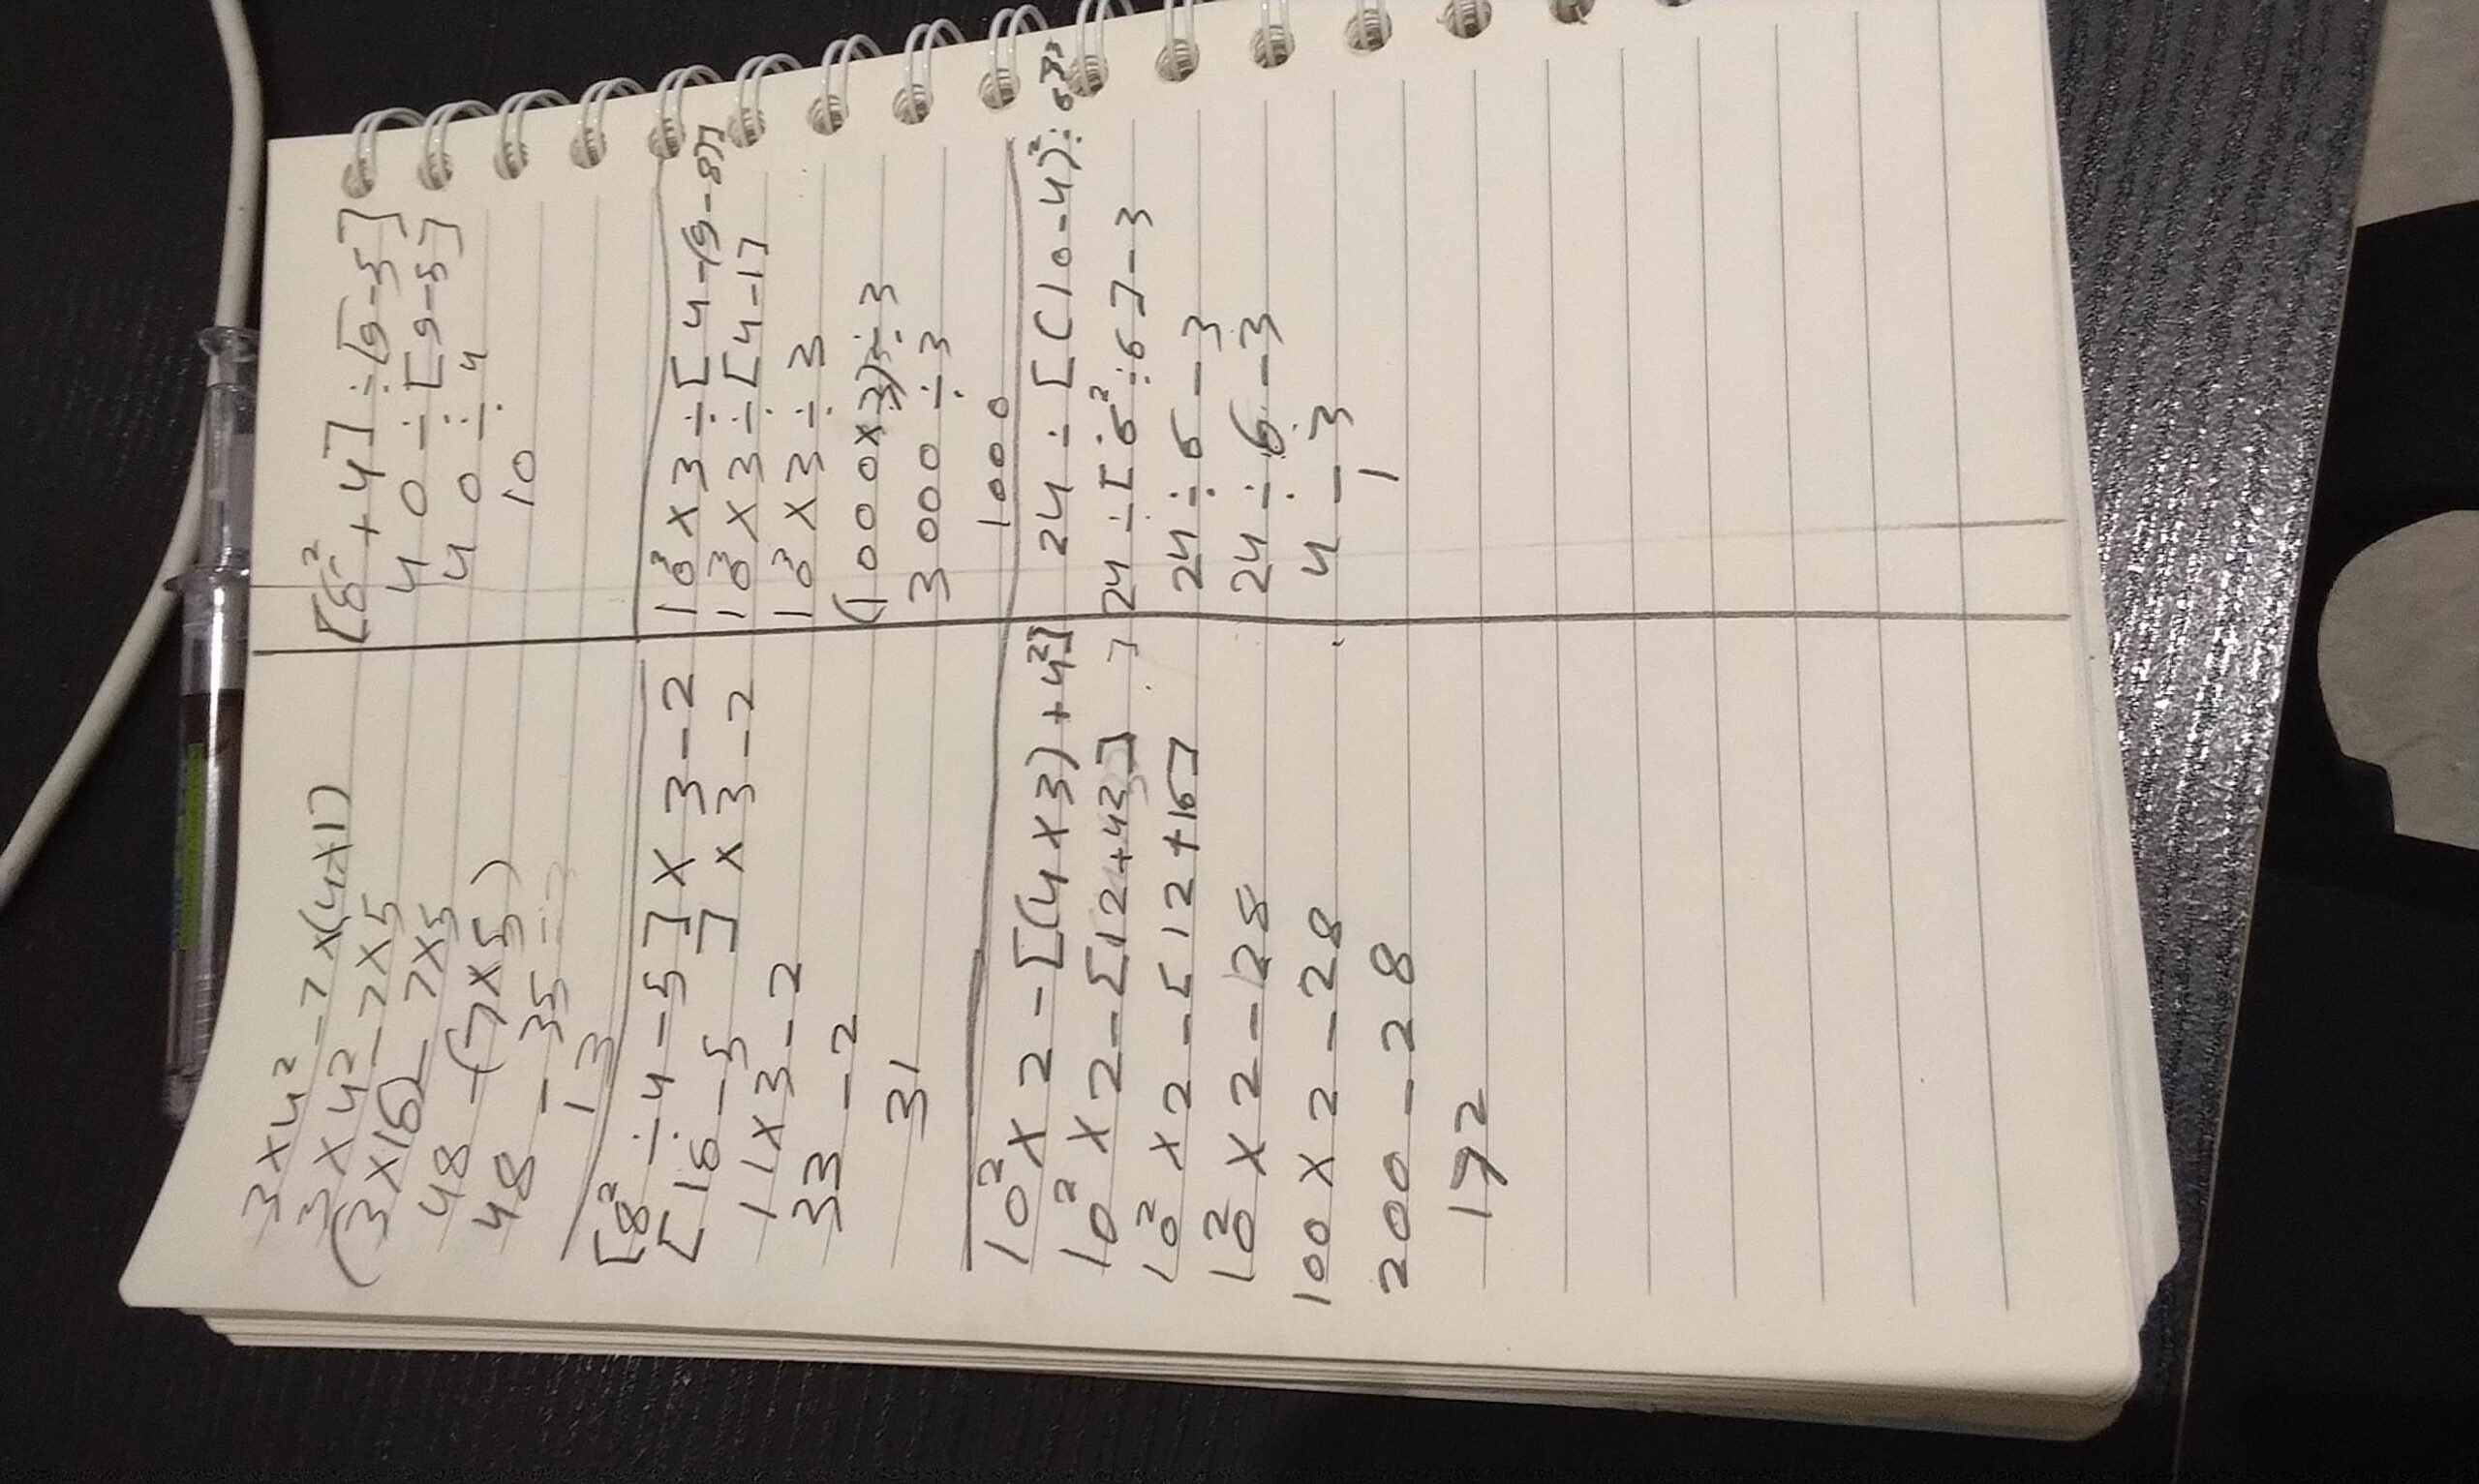 3×4²-7×(4×1)
3×4²-7×5
(3×16)-7×5
48-(7×5)
48-35
13
[8²÷4-5]×3-2
[16-5]×3-2
11×3-2
33-2
31
10²×2-[(4×3)+4²]
10²×2-[12+42]
10²×2-[12+16]
10²×2-28
100×2-28
200-28
172
[6²+4]÷[9-5]
40÷[9-5]
40÷4
10
10³×3÷[4-(9-8)]
10³×3÷[4-1]
10³×3÷3
(1000×3)÷3
3000÷3
1000
24÷[(10-4)²÷6]-3
24÷[6²÷6]-3
24÷6-3
24÷6-3
4-3
1